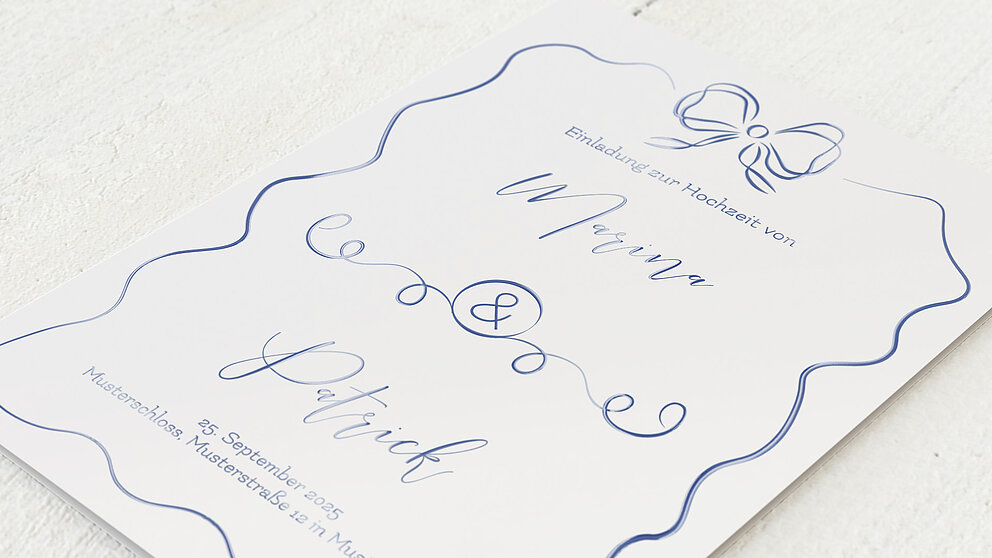 Einladung zur Hochzeit von
Marina
&
Patrick
25. September 2025
Musterschloss, Musterstraße 12 in